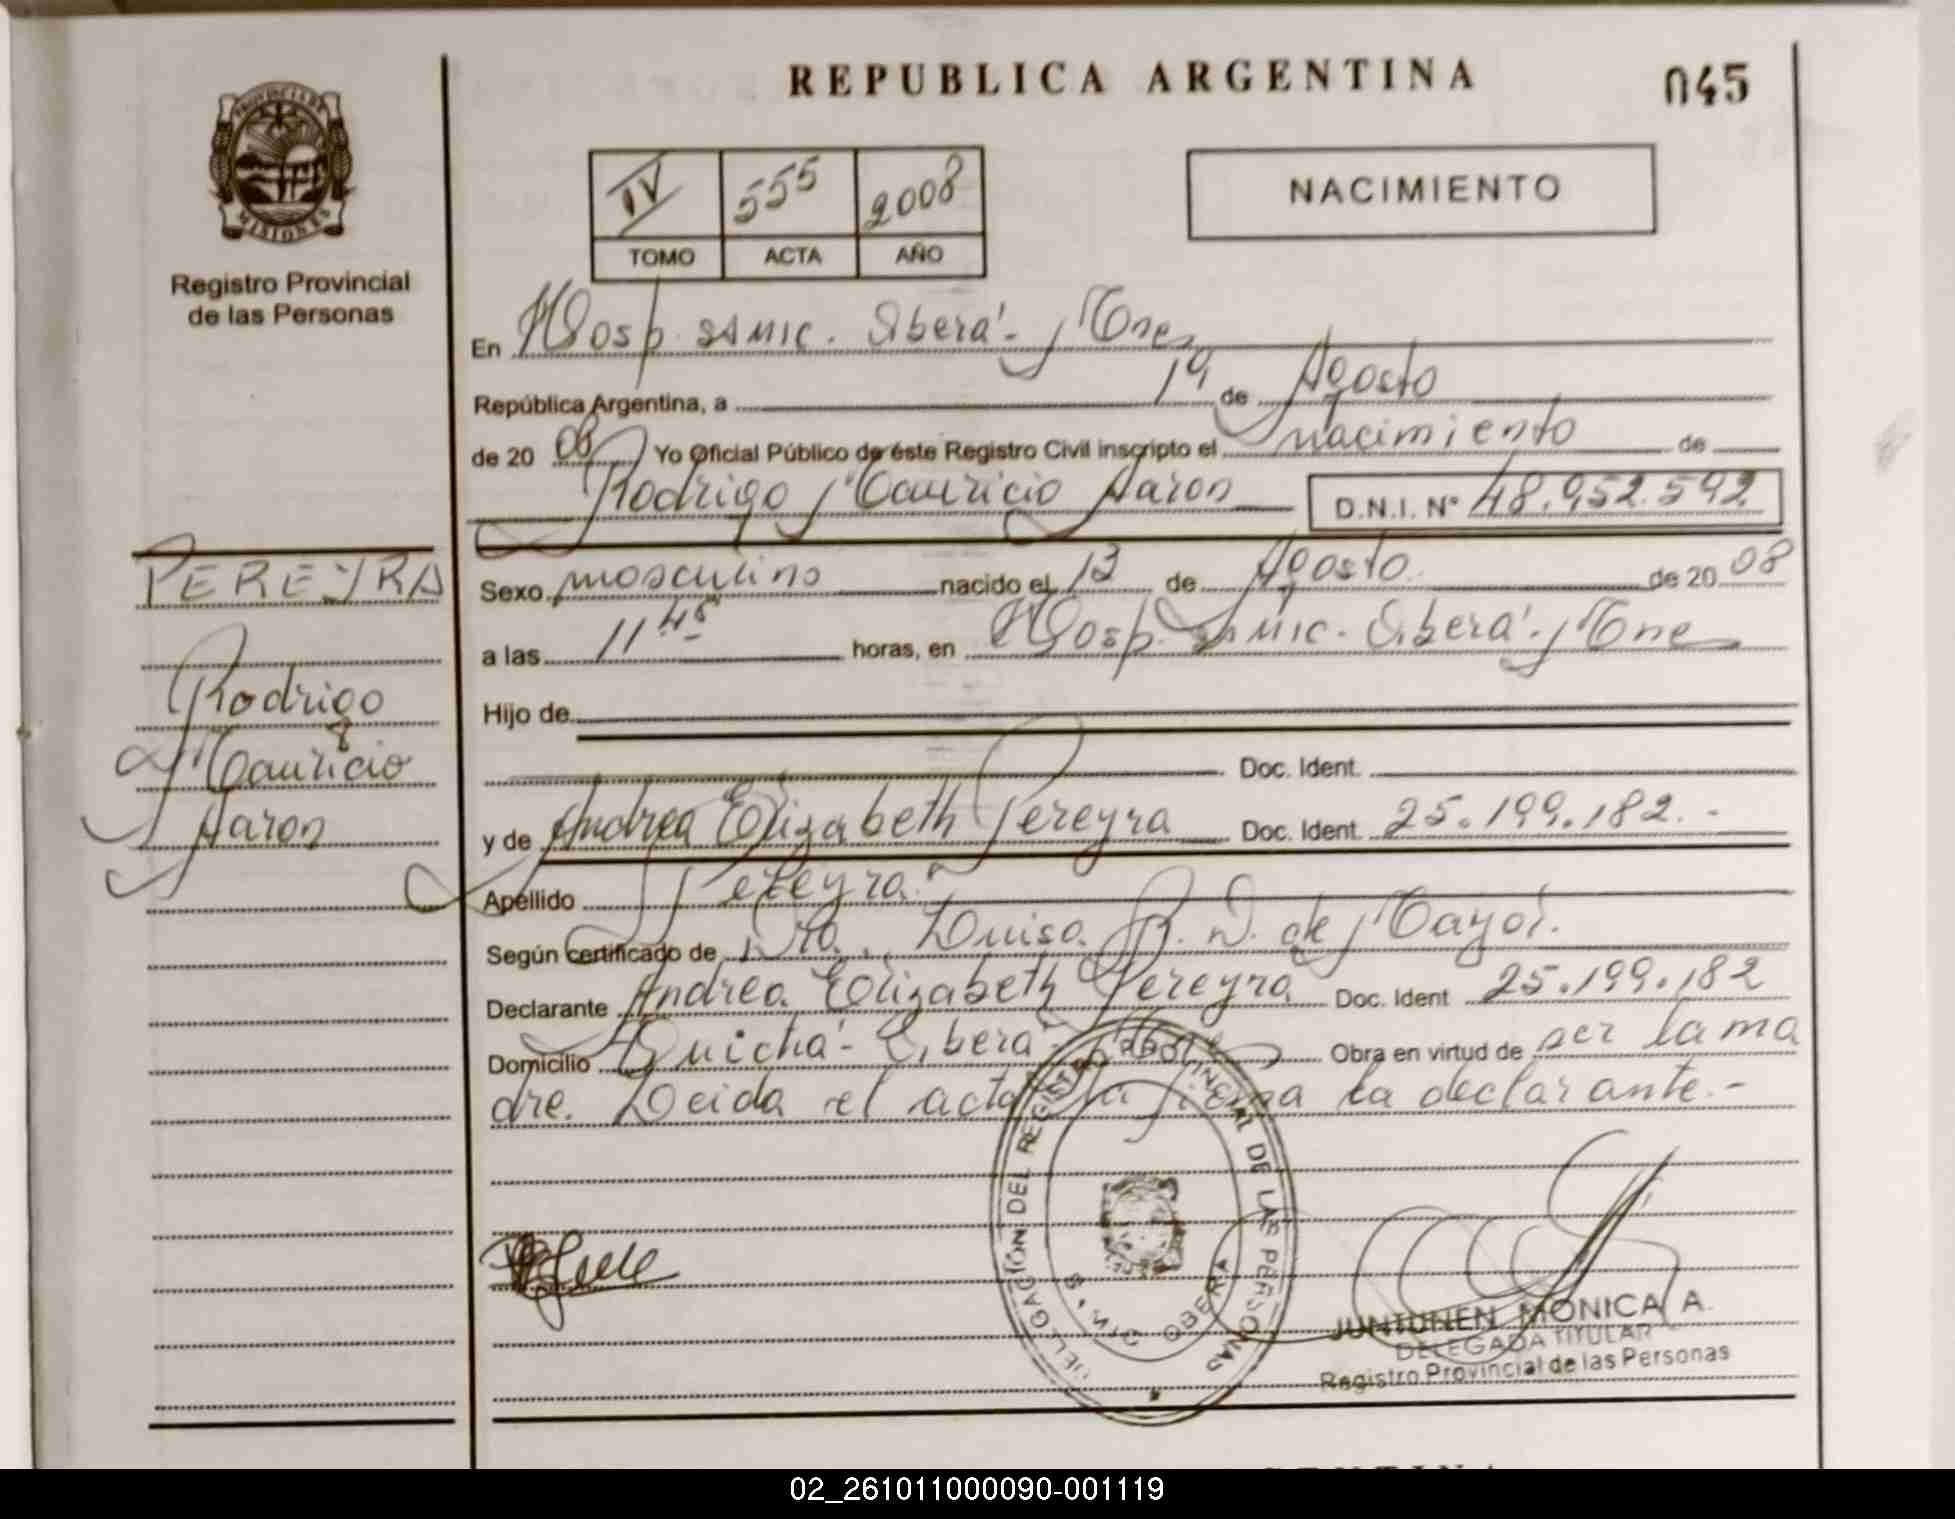 REPUBLICA ARGENTINA
045
PROVINCIA DE MISIONES
Registro Provincial
de las Personas
IV 555 2008
TOMO ACTA AÑO
NACIMIENTO
En Hosp. SAMIC. Oberá - Mnes
República Argentina, a 19 de Agosto
de 20 08 Yo Oficial Público de éste Registro Civil inscripto el nacimiento de
Rodrigo Mauricio Aaron D.N.I. Nº 48.952.592
PEREYRA
Rodrigo
Mauricio
Aaron
Sexo masculino nacido el 13 de Agosto de 20 08
a las 11 45 horas, en Hosp. Samic. Oberá - Mnes
Hijo de
Doc. Ident.
y de Andrea Elizabeth Pereyra Doc. Ident. 25.199.182.-
Apellido Pereyra.-
Según certificado de Dra. Luisa R. D. de
Declarante Andrea Elizabeth Pereyra Doc. Ident 25.199.182
Domicilio Oberá - Obra en virtud de ser la ma
dre. Leida el acta la firma la declarante.-
DELEGACIÓN DEL REGISTRO PROVINCIAL DE LAS PERSONAS
OBERA
JUNTUNEN MONICA A.
DELEGADA TITULAR
Registro Provincial de las Personas
02_261011000090-001119